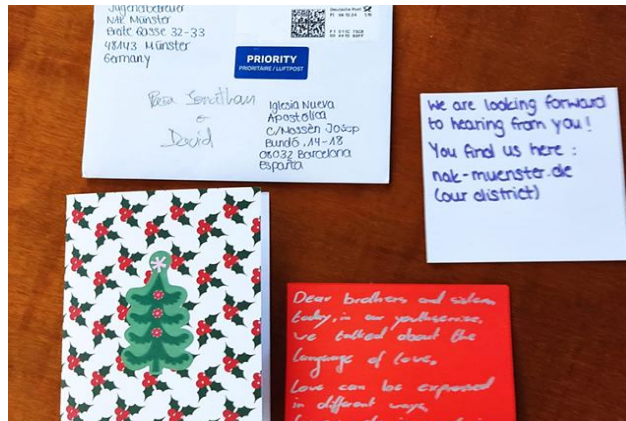 Jugendbetreuer
NAK Münster
Breite Gasse 32-33
48143 Münster
Germany
Deutsche Post
PRIORITY
PRIORITAIRE / LUFTPOST
Para Jonathan
o
David
Iglesia Nueva
Apostólica
C/Mossèn Josep
Bundó, 14-18
08032 Barcelona
España
We are looking forward
to hearing from you!
You find us here:
nak-muenster.de
(our district)
Dear brothers and sisters
today, in our youthservice,
we talked about the
language of love.
Love can be expressed
in different ways,